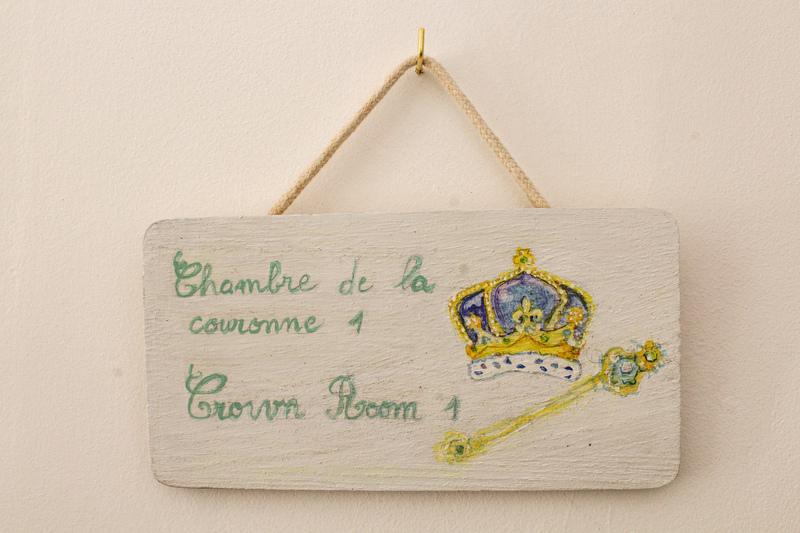 Chambre de la
couronne 1
Crown Room 1